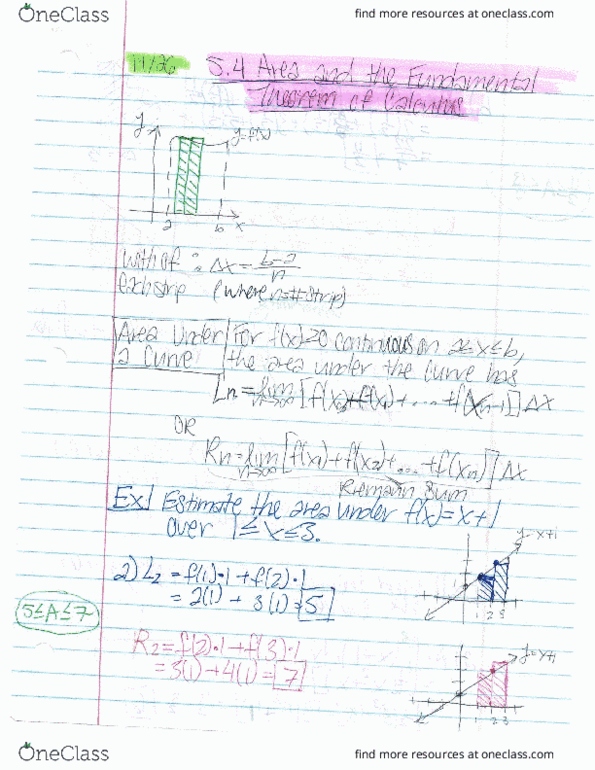 OneClass
find more resources at oneclass.com
11/26 5.4 Area and the Fundamental
Theorem of Calculus
y y=f(x)
a b x
with of : Δx = b-a/n
each strip (where n=# strip)
Area Under a Curve
For f(x)≥0 continuous on a≤x≤b,
the area under the curve has
Ln = lim n→∞ [f(x0)+f(x1)+....+f(xn-1)]Δx
OR
Rn = lim n→∞ [f(x1)+f(x2)+....+f(xn)]Δx
Riemann Sum
Ex1 Estimate the area under f(x)=x+1
over 1≤x≤3.
y=x+1
1 2 3
a) L2 = f(1)·1+f(2)·1
= 2(1) + 3(1) = 5
5≤A≤7
R2 = f(2)·1+f(3)·1
= 3(1)+4(1) = 7
y=x+1
1 2 3
OneClass
find more resources at oneclass.com